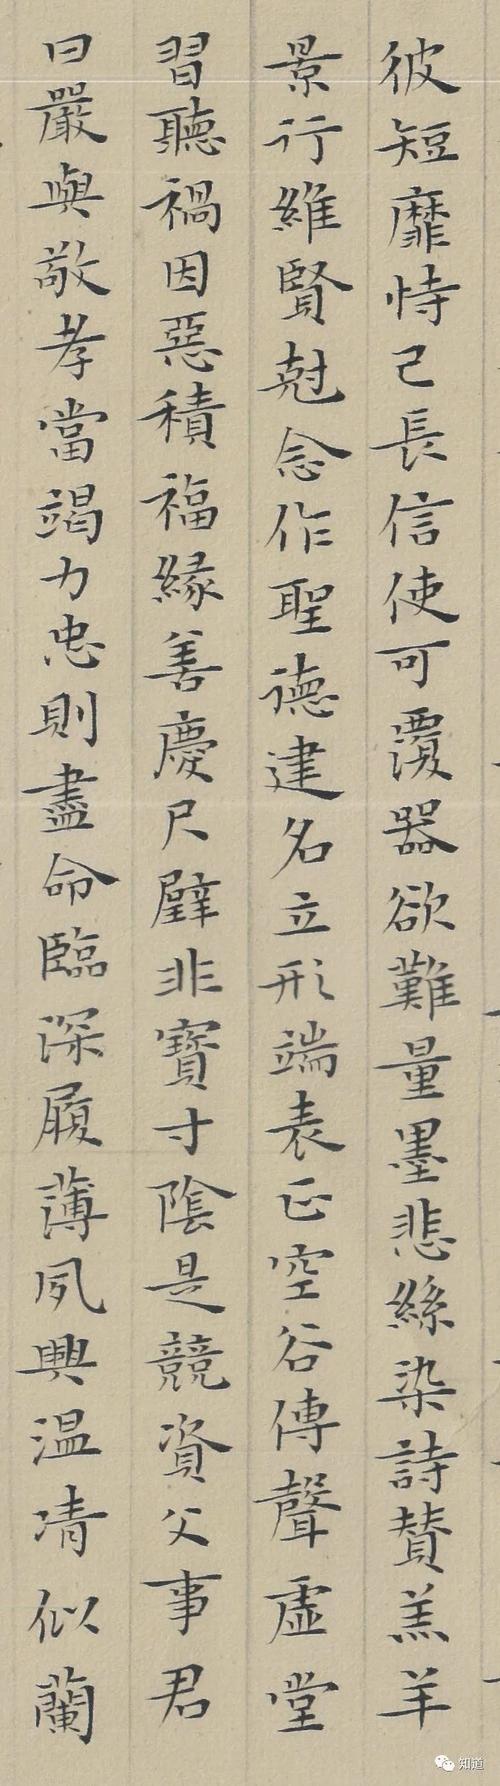 彼短靡恃己長信使可覆器欲難量墨悲絲染詩賛羔羊
景行維賢尅念作聖德建名立形端表正空谷傳聲虛堂
習聽禍因惡積福緣善慶尺璧非寶寸陰是競資父事君
曰嚴與敬孝當竭力忠則盡命臨深履薄夙興温凊似蘭
知道